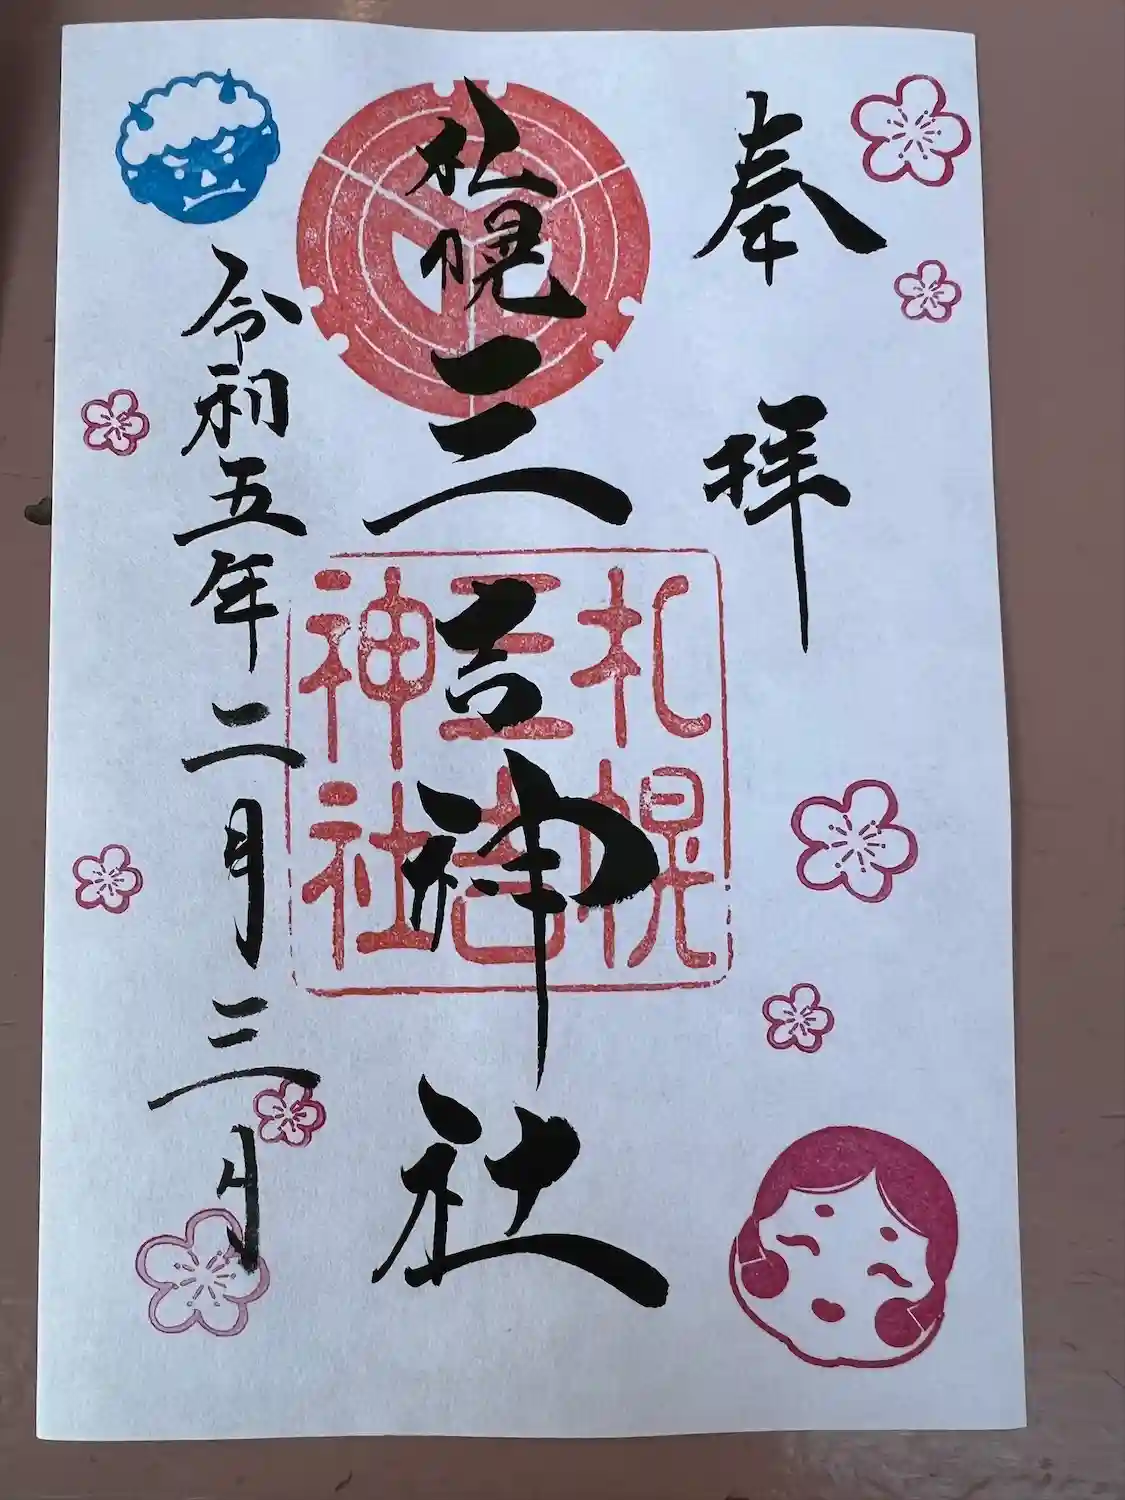 奉拝
札幌三吉神社
札幌
三吉
神社
令和五年二月三日